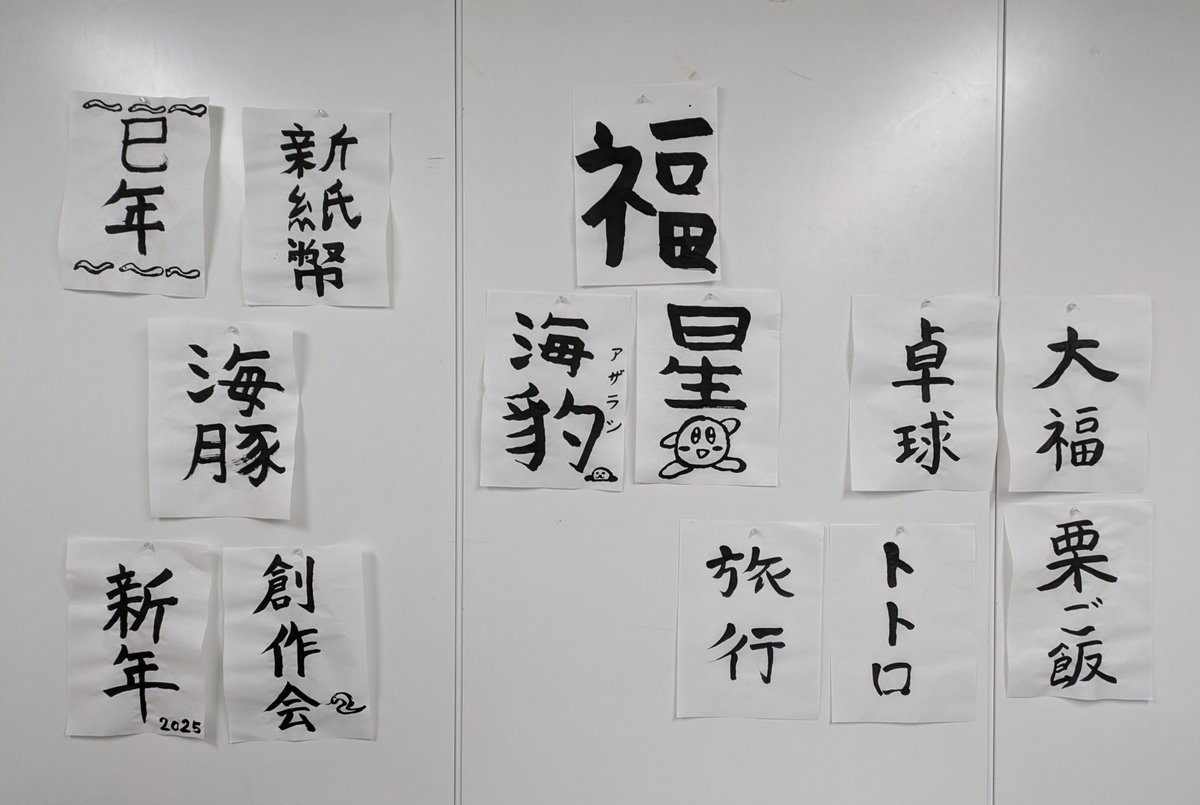 巳年
新紙幣
海豚
新年
2025
創作会
福
海豹
アザラシ
星
卓球
大福
旅行
トトロ
栗ご飯